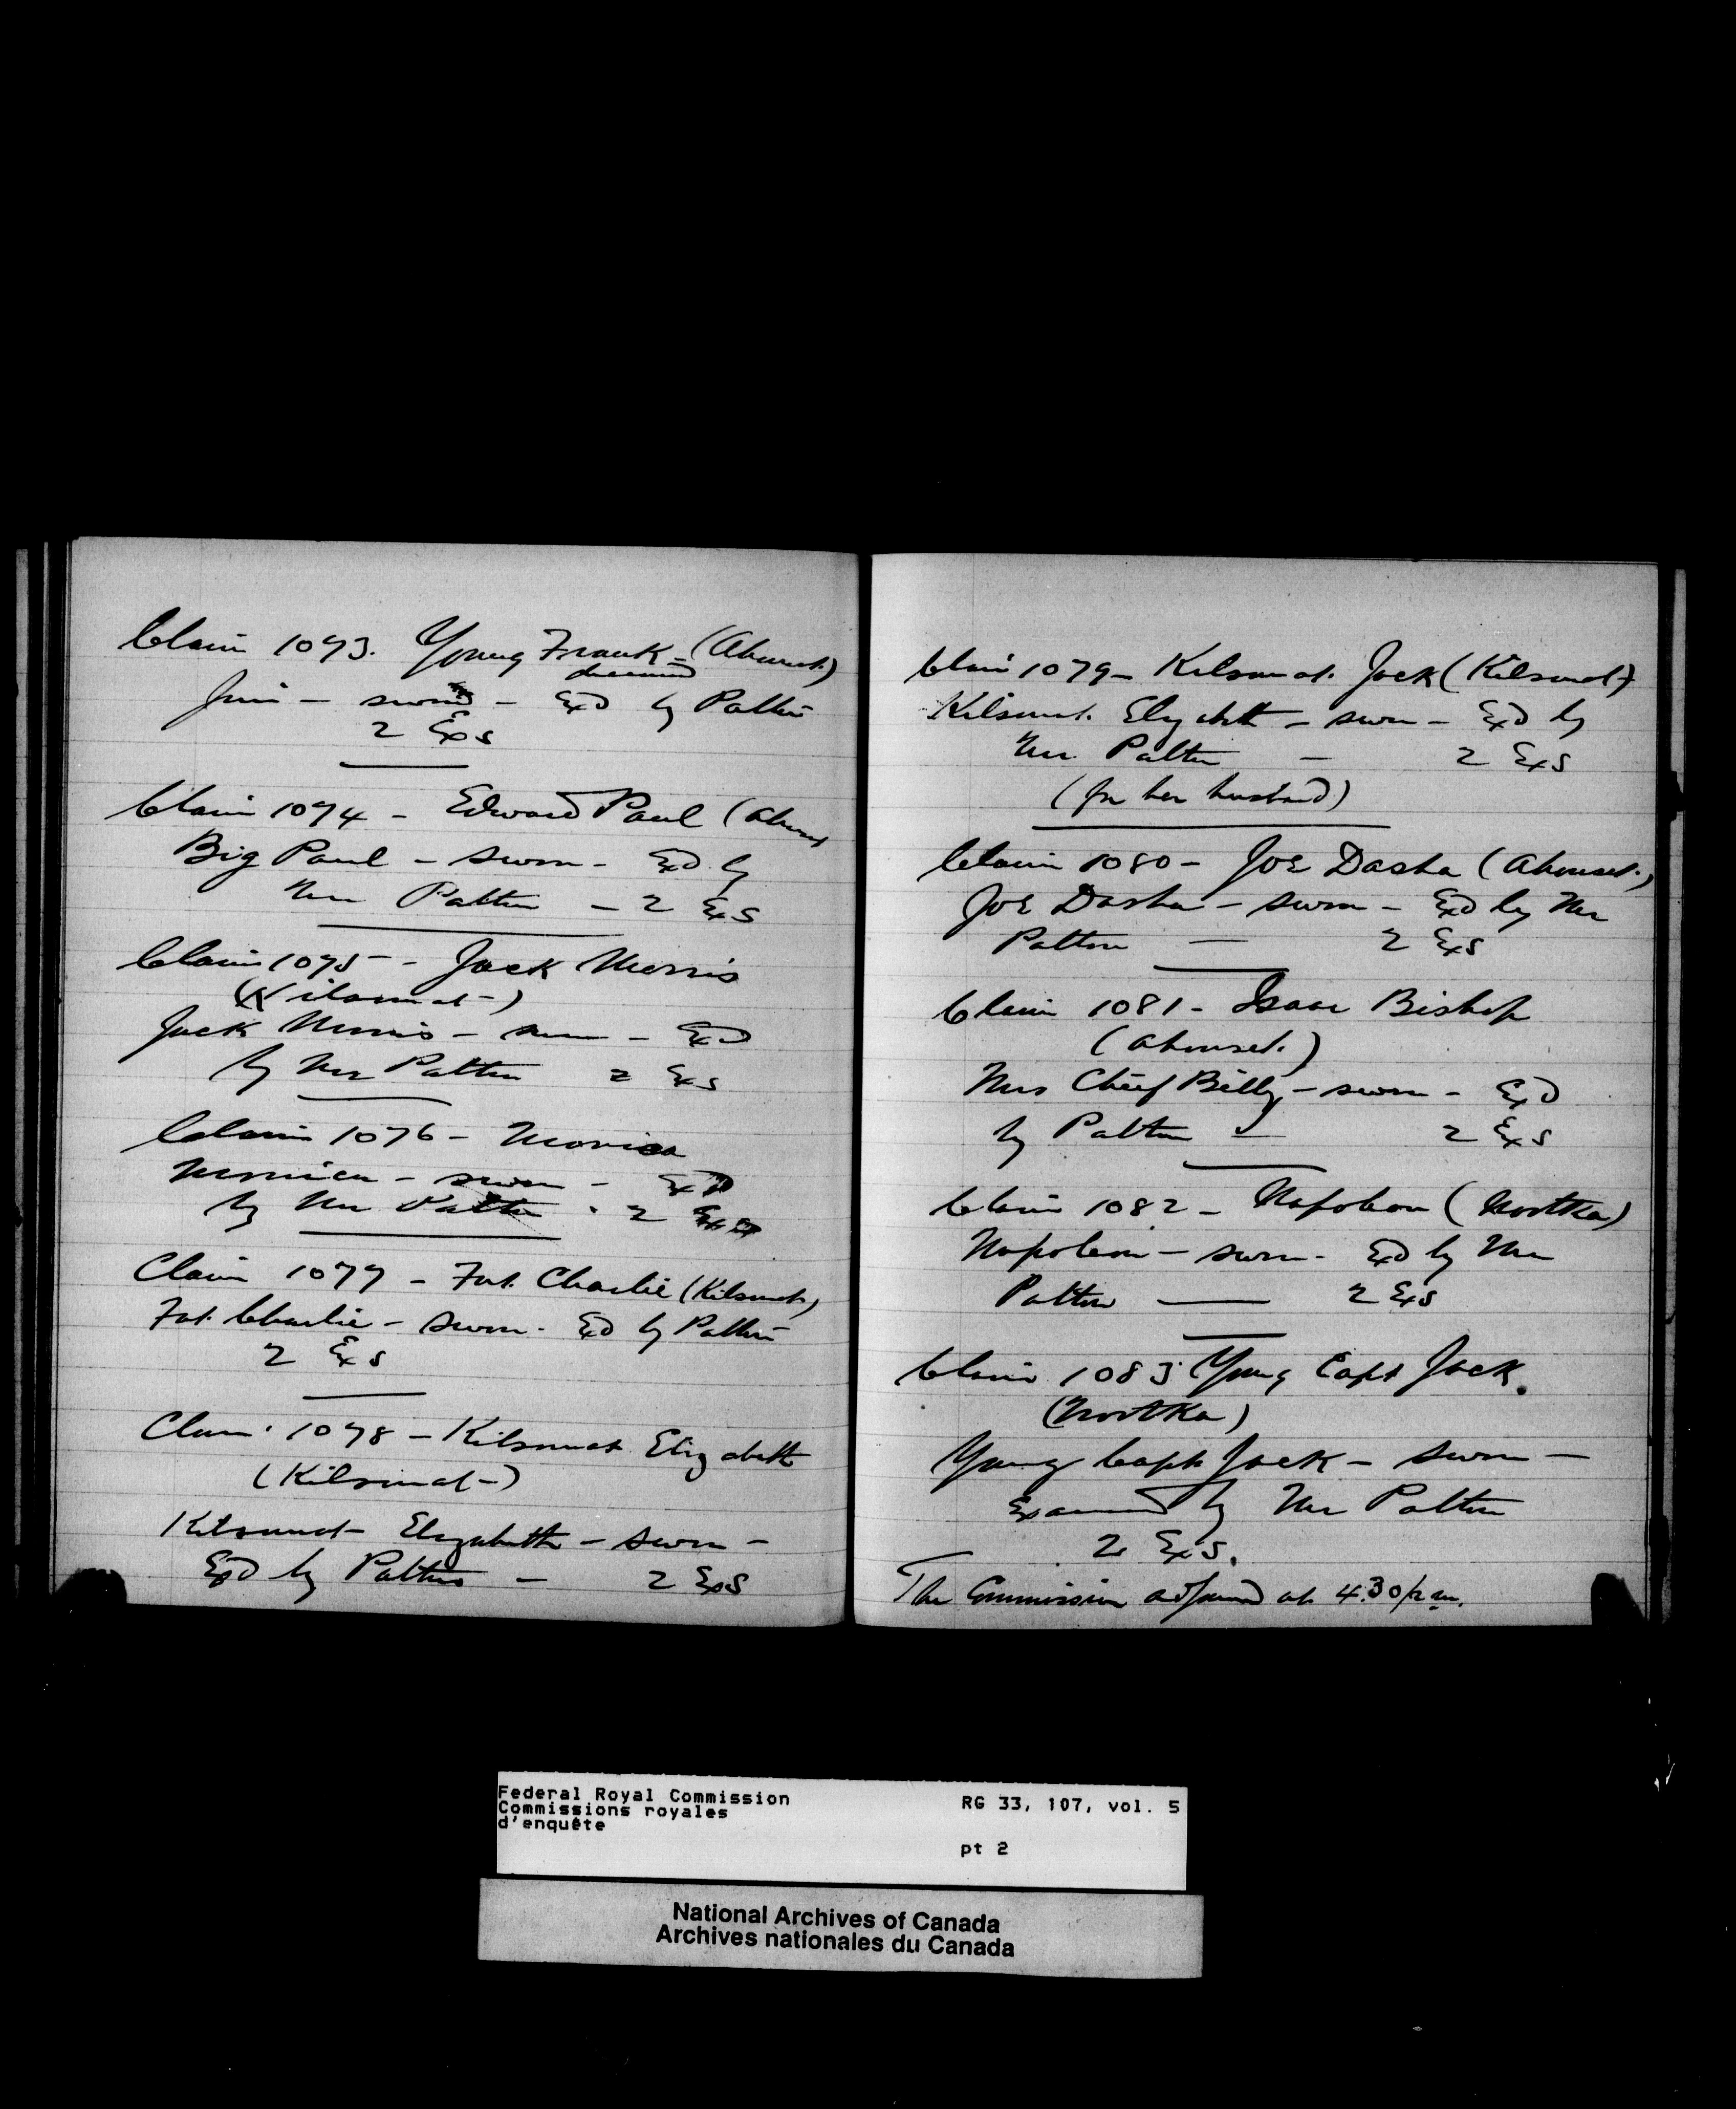 Claim 1073. Young Frank - (Ahousat)
deceased
Jim - sworn - Exd by Patton
2 Exs
Claim 1074 - Edward Paul (Ahous
Big Paul - sworn - Exd by
Mr Patton - 2 Exs
Claim 1075 - Jack Morris
(Kilsmat-)
Jack Morris - sworn - Exd
by Mr Patton 2 Exs
Claim 1076 - Monica
Monica - sworn - Exd
by Mr Patton - 2 Exs
Claim 1077 - Fat. Charlie (Kilsmat)
Fat. Charlie - sworn - Exd by Patton
2 Exs
Claim 1078 - Kilsmat Elizabeth
(Kilsmat-)
Kilsmat Elizabeth - sworn -
Exd by Patton - 2 Exs
Claim 1079 - Kilsmat. Jack (Kilsmat)
Kilsmat. Elizabeth - sworn - Exd by
Mr. Patton - 2 Exs
(for her husband)
Claim 1080 - Joe Dasha (Ahousat.)
Joe Dasha - sworn - Exd by Mr
Patton - 2 Exs
Claim 1081 - Isaac Bishop
(Ahousat.)
Mrs Chief Billy - sworn - Exd
by Patton - 2 Exs
Claim 1082 - Napoleon (Nootka)
Napoleon - sworn - Exd by Mr
Patton - 2 Exs
Claim 1083 Young Capt Jack.
(Nootka)
Young Capt Jack - sworn -
Examined by Mr Patton
2 Exs.
The Commission adjourned at 4.30 p.m.
Federal Royal Commission RG 33, 107, vol. 5
Commissions royales
d'enquête
pt 2
National Archives of Canada
Archives nationales du Canada